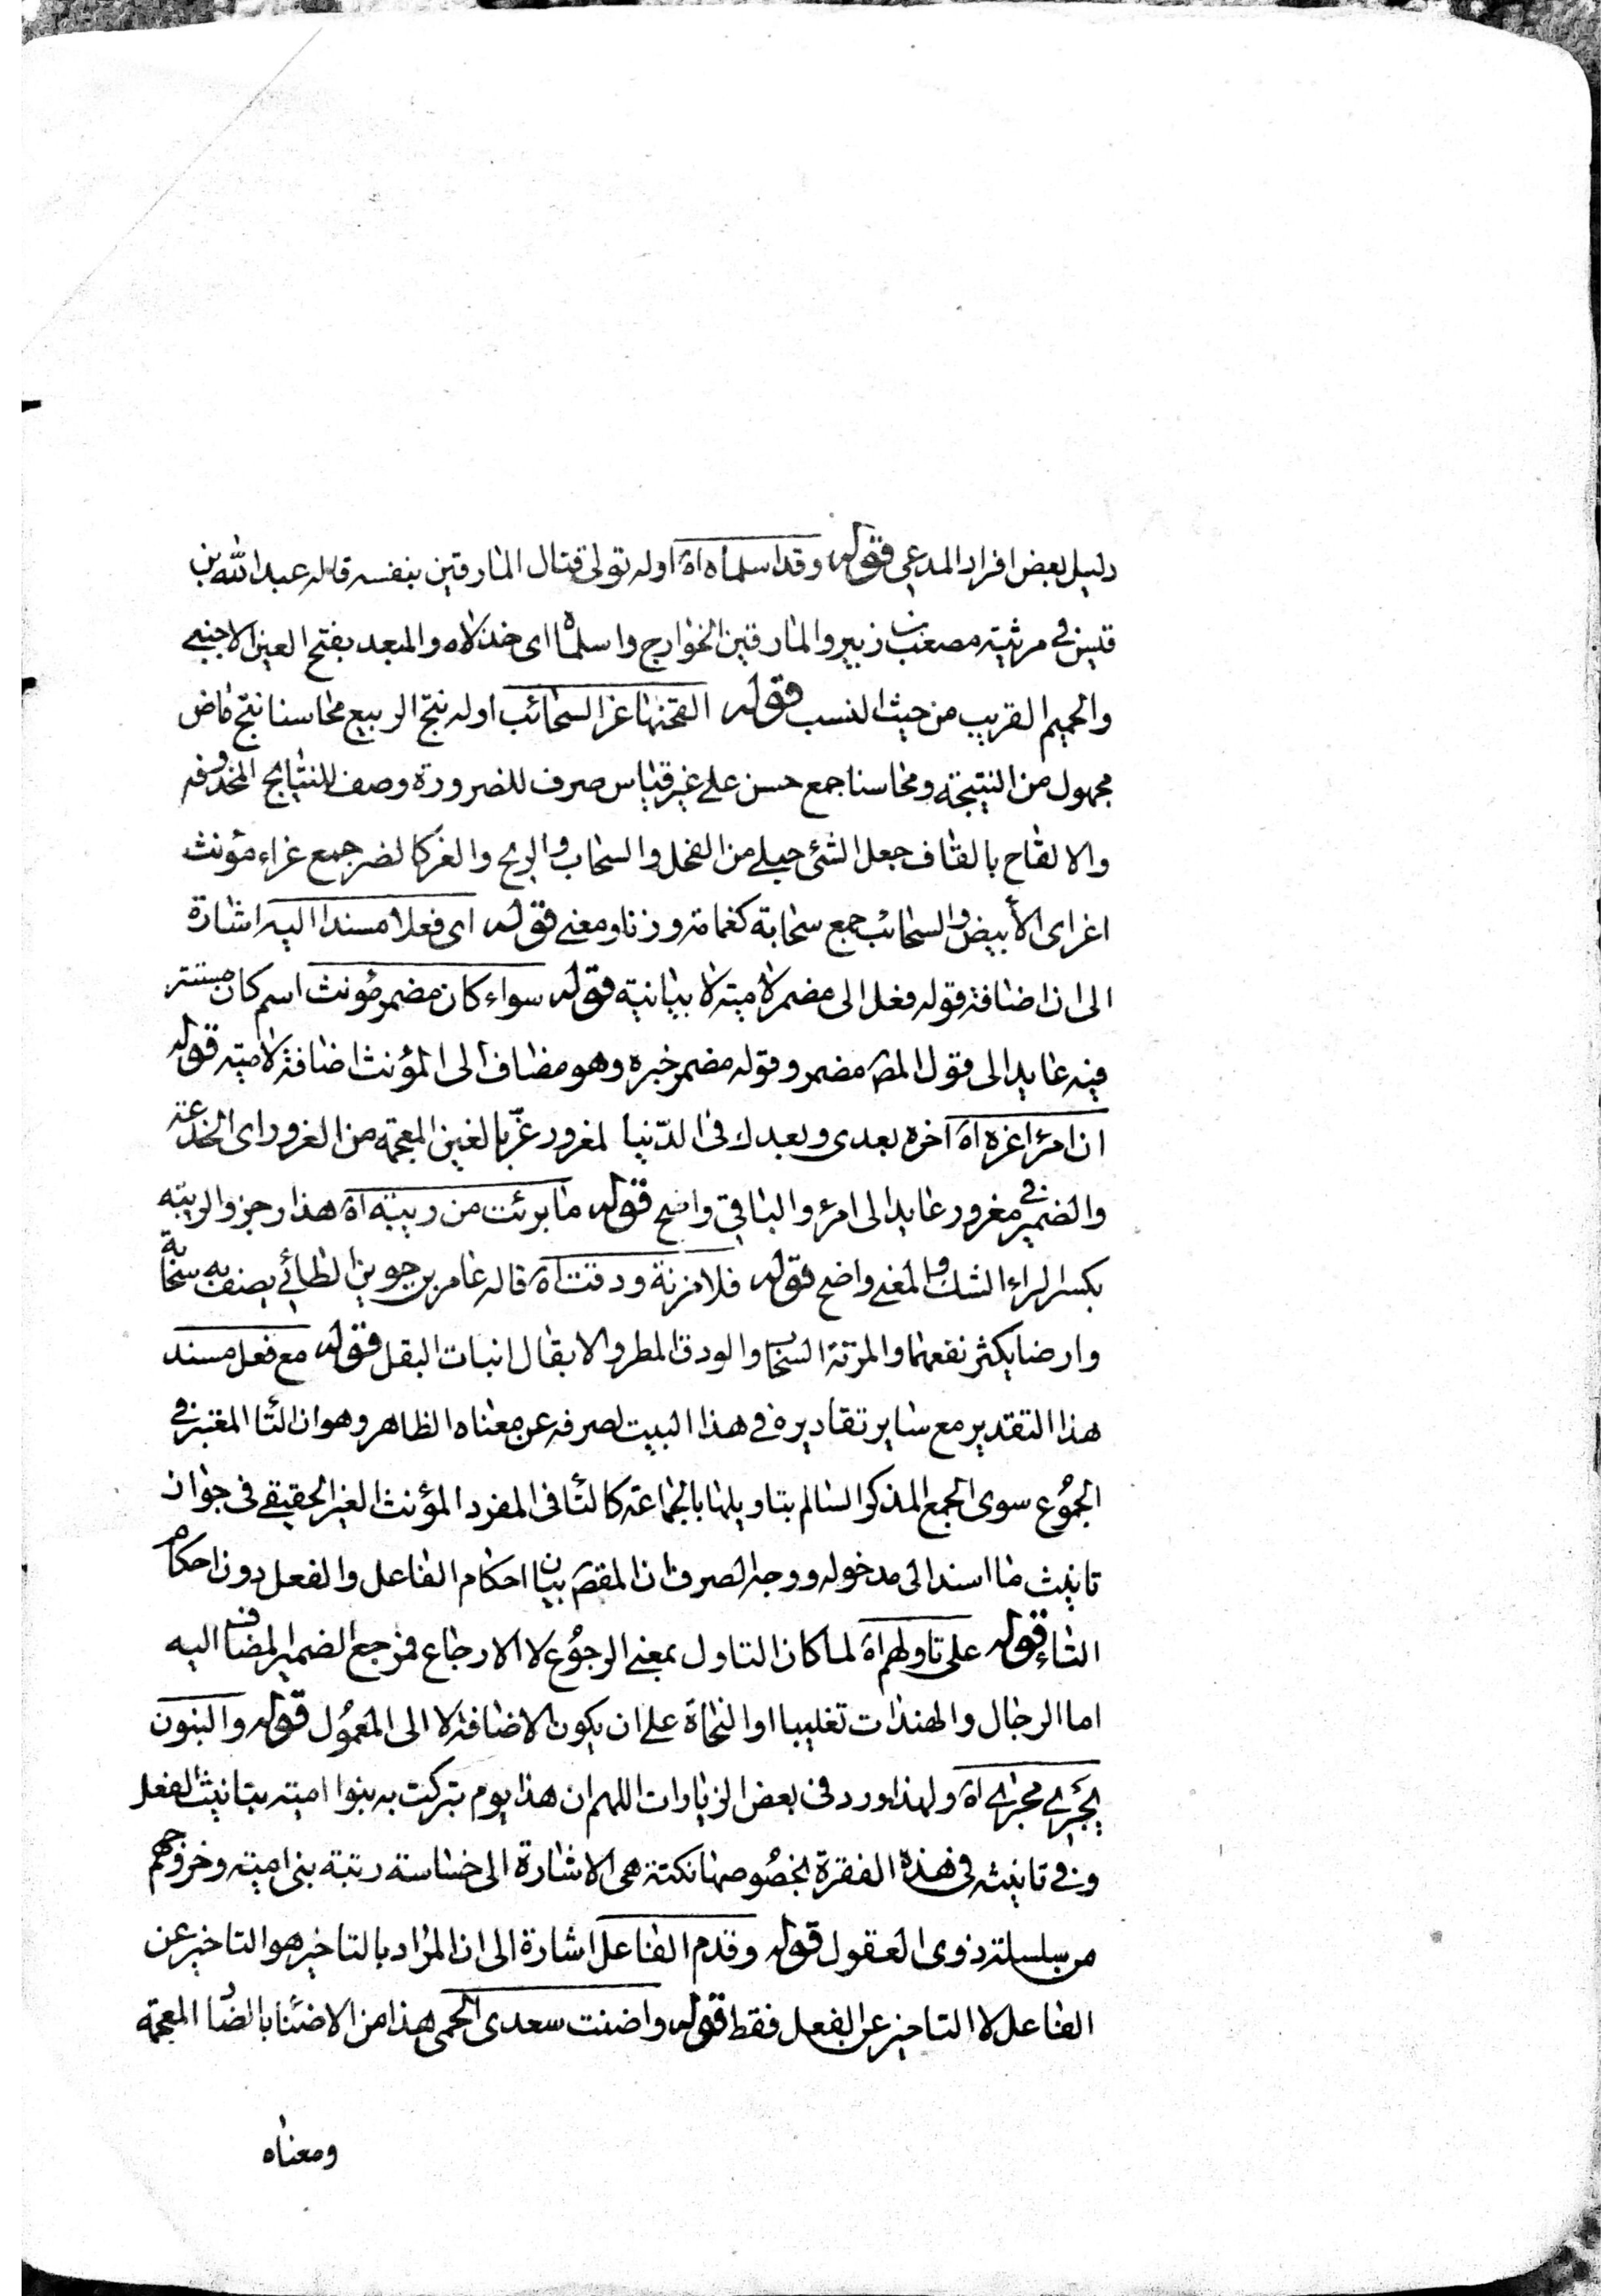 دليل بعض افراد المدعي قوله وقد اسلماه اه اوله تولى قتال المارقين بنفسه قاله عبد الله بن
قيس في مرثية مصعب بن زبير والمارقين الخوارج واسلماه اي خذلاه والمبعد بفتح العين الاجنبي
والحميم القريب من حيث النسب قوله القحنها غر السحائب اوله نتج الربيع محاسنا نتج ماض
مجهول من النتيجة ومحاسنا جمع حسن على غير قياس صرف للضرورة وصف للنتايج المحذوفه
والالقاح بالقاف جعل الشئ حبلى من الفحل والسحاب والريح والغر كالضر جمع غراء مؤنث
اغر اي الأبيض والسحائب جمع سحابة كغمامة وزنا ومعنى قوله اي فعلا مسندا اليه اشارة
الى ان اضافة قوله فعل الى مضمر لامية لا بيانية قوله سواء كان مضمر مؤنث اسم كان مستتر
فيه عايد الى قول المصـ مضمر وقوله مضمر خبره وهو مضاف الى المؤنث اضافة لامية قوله
ان امرءا غره اه اخره بعدي وبعدك في الدّنيا لمغرور غرّ بالغين المعجمة من الغرور اي الخدعة
والضمير في مغرور عايد الى امرء والباقي واضح قوله ما برئت من ريبة اه هذا رجز والريبة
بكسر الراء الشك والمعنى واضح قوله فلا مزنة ودقت اه قاله عامر بن جوين الطائي يصف به سحابة
وارضا يكثر نفعهما والمزنة السحاب والودق المطر والابقال انبات البقل قوله مع فعل مسند
هذا التقدير مع ساير تقاديره في هذا البيت لصرفه عن معناه الظاهر وهو ان التاء المعتبر في
الجموع سوى الجمع المذكر السالم بتاويلها بالجماعة كالتاء في المفرد المؤنث الغير الحقيقي في جواز
تانيث ما اسند الى مدخوله ووجه الصرف ان المقصـ بيان احكام الفاعل والفعل دون احكام
التاء قوله على تاولهم اه لما كان التاول بمعنى الرجوع لا الارجاع فمرجع الضمير المضاف اليه
اما الرجال والهندات تغليبا او النحاة على ان يكون الاضافة لا الى المعمول قوله والبنون
يجرى مجرى اه ولهذا ورد في بعض الزيارات اللهم ان هذا يوم تبركت به بنوا امية بتانيث الفعل
وفي تانيثه في هذه الفقرة بخصوصها نكتة هي الاشارة الى خساسة رتبة بني امية وخروجهم
من سلسلة ذوى العقول قوله وقدم الفاعل اشارة الى ان المراد بالتاخير هو التاخير عن
الفاعل لا التاخير عن الفعل فقط قوله واضنت سعدى الحمى هذا من الاضناء بالضاد المعجمة
ومعناه